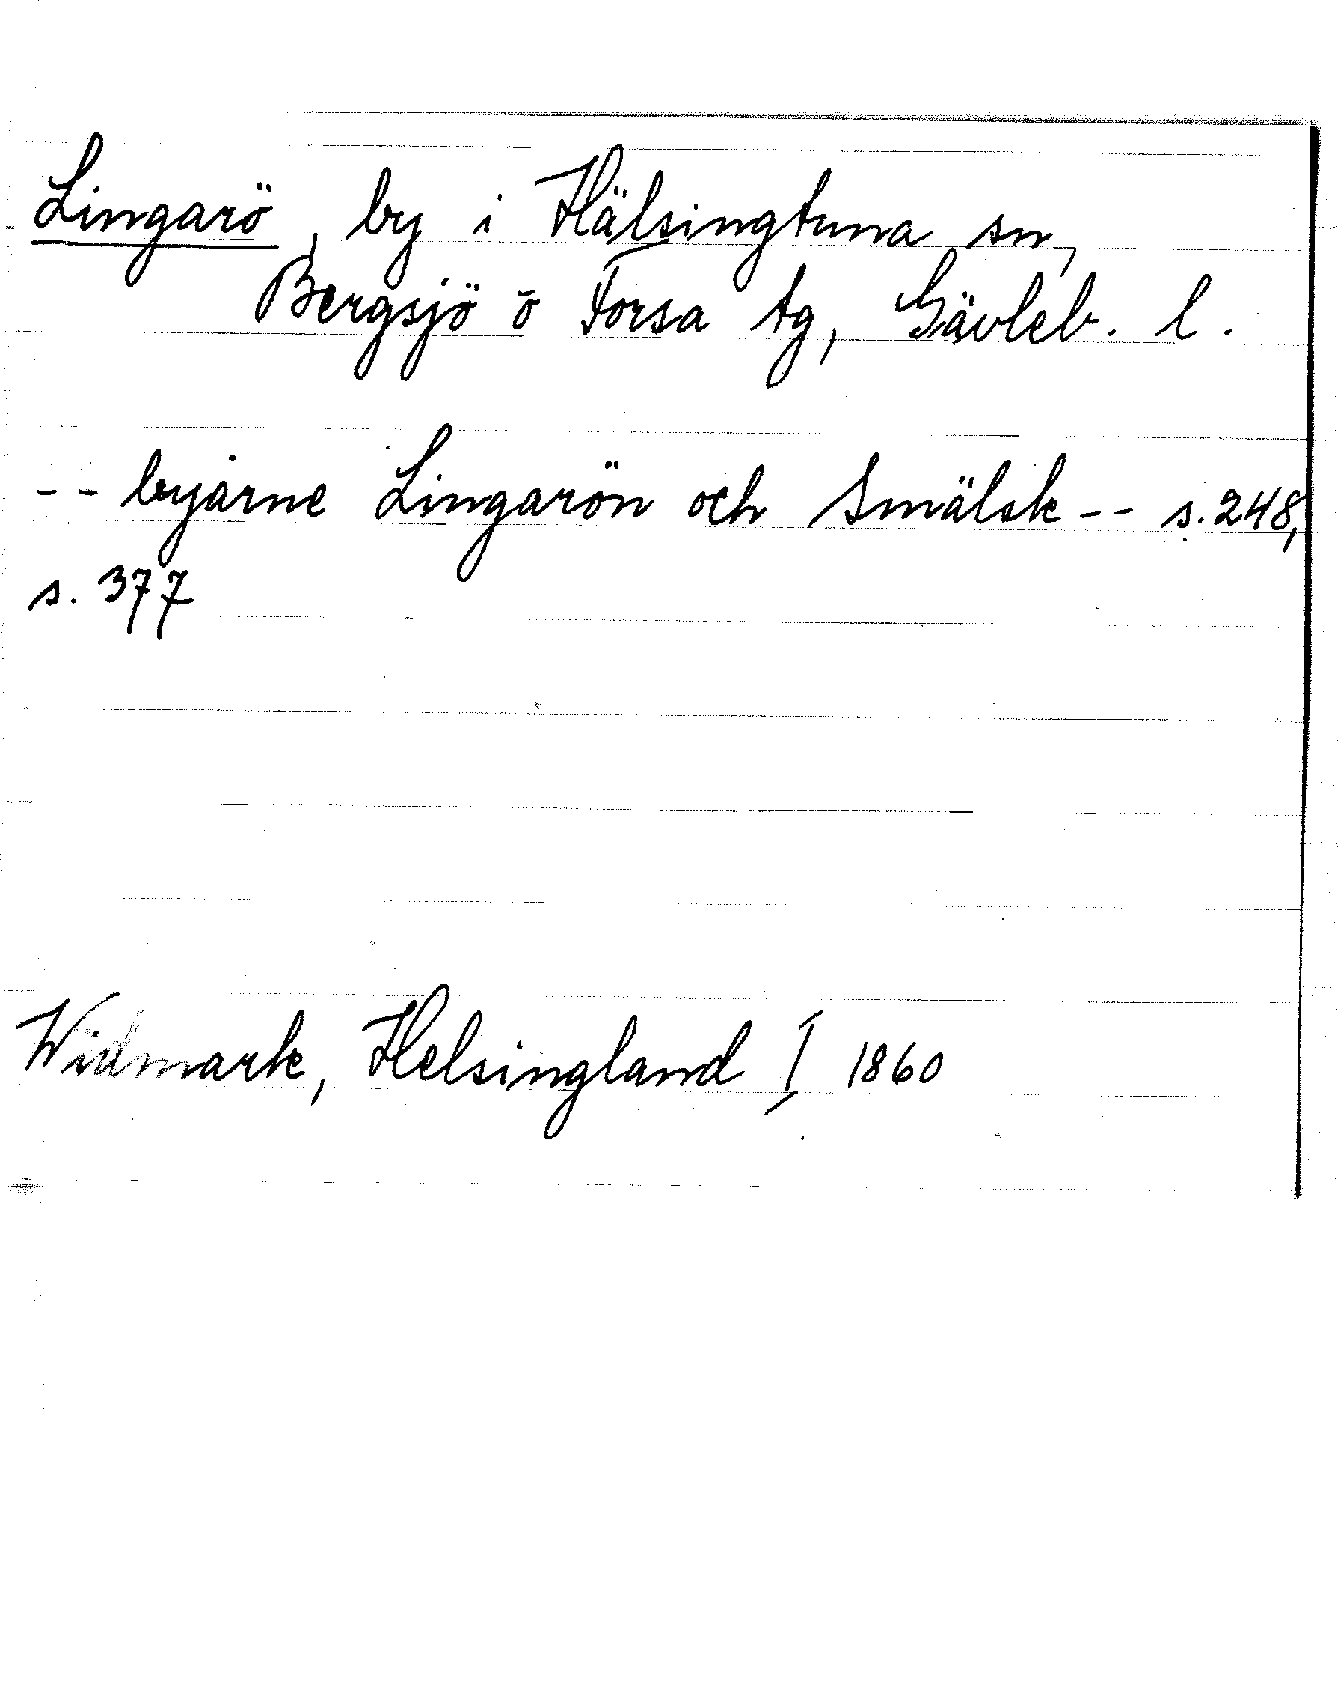 Lingarö, by i Hälsingtuna sn,
Bergsjö o Forsa tg, Gävleb. l.
-- byarne Lingarön och Smälsk -- s. 248,
s. 377
Widmark, Helsingland I 1860